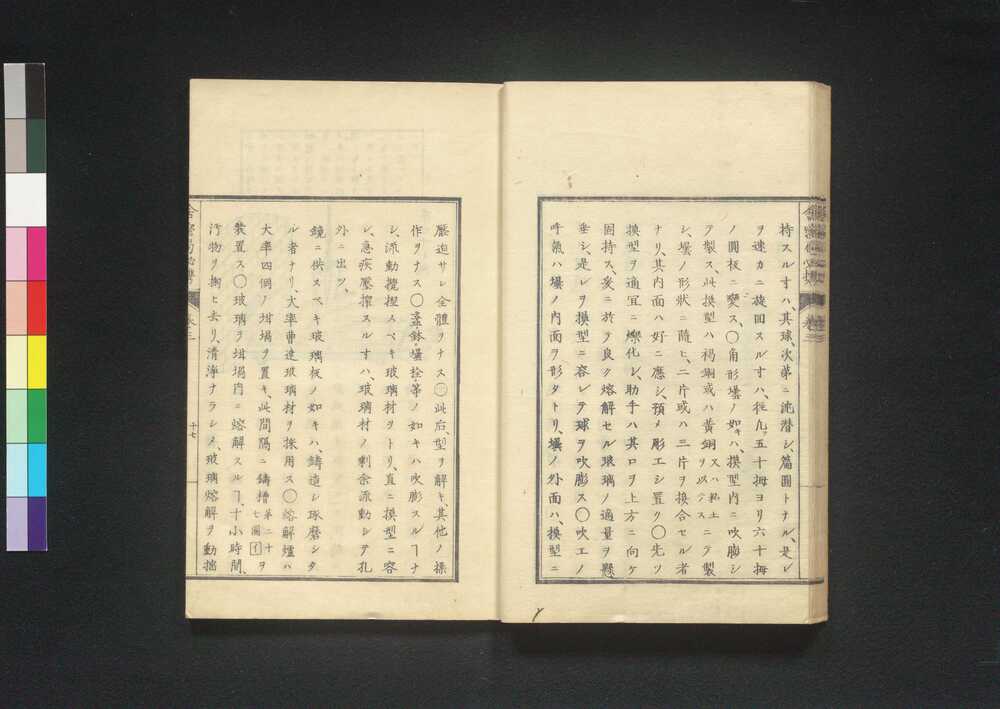 持スル寸ハ、其球、次第ニ沈潜シ、篇圓トナル、是レ
ヲ速カニ旋回スル寸ハ、徑凡ソ五十拇ヨリ六十拇
ノ圓板ニ變ス、〇角形壜ノ如キハ、摸型内ニ吹膨シ
テ製ス、此摸型ハ褐銅或ハ黄銅又ハ粘土ヲ以テスニテ製
シ、壜ノ形状ニ隨ヒ、二片或ハ三片ヲ換合セル者
ナリ、其内面ハ好ニ應シ、預メ彫工シ置ク〇先ツ
摸型ヲ適宜ニ爍化シ、助手ハ其口ヲ上方ニ向ケ
固持ス、爰ニ於テ良ク熔解セル玻璃ノ適量ヲ懸
垂シ、是レヲ摸型ニ容レテ球ヲ吹膨ス〇吹工ノ
呼氣ハ壜ノ内面ヲ形タトリ、壜ノ外面ハ、摸型ニ
壓迫サレ全體ヲナス〇此后、型ヲ解キ、其他ノ操
作ヲナス〇盃鉢壜栓等ノ如キハ吹膨スルヿナ
シ、流動攪捏スヘキ玻璃材ヲトリ、直ニ摸型ニ容
シ、急疾壓搾スル寸ハ、玻璃材ノ剰余流動シテ孔
外ニ出ツ、
鏡ニ供スヘキ玻璃板ノ如キハ、鑄造シ琢磨シタ
ル者ナリ、大率曹達玻璃材ヲ採用ス〇熔解爐ハ
大率四個ノ坩堝ヲ置キ、此間隔ニ鑄槽第二十七圖イヲ
裝置ス〇玻璃ヲ坩堝内ニ熔解スルヿ、十小時間、
汚物ヲ掬ヒ去リ、清淨ナラシメ、玻璃熔解ヲ動搖
十七